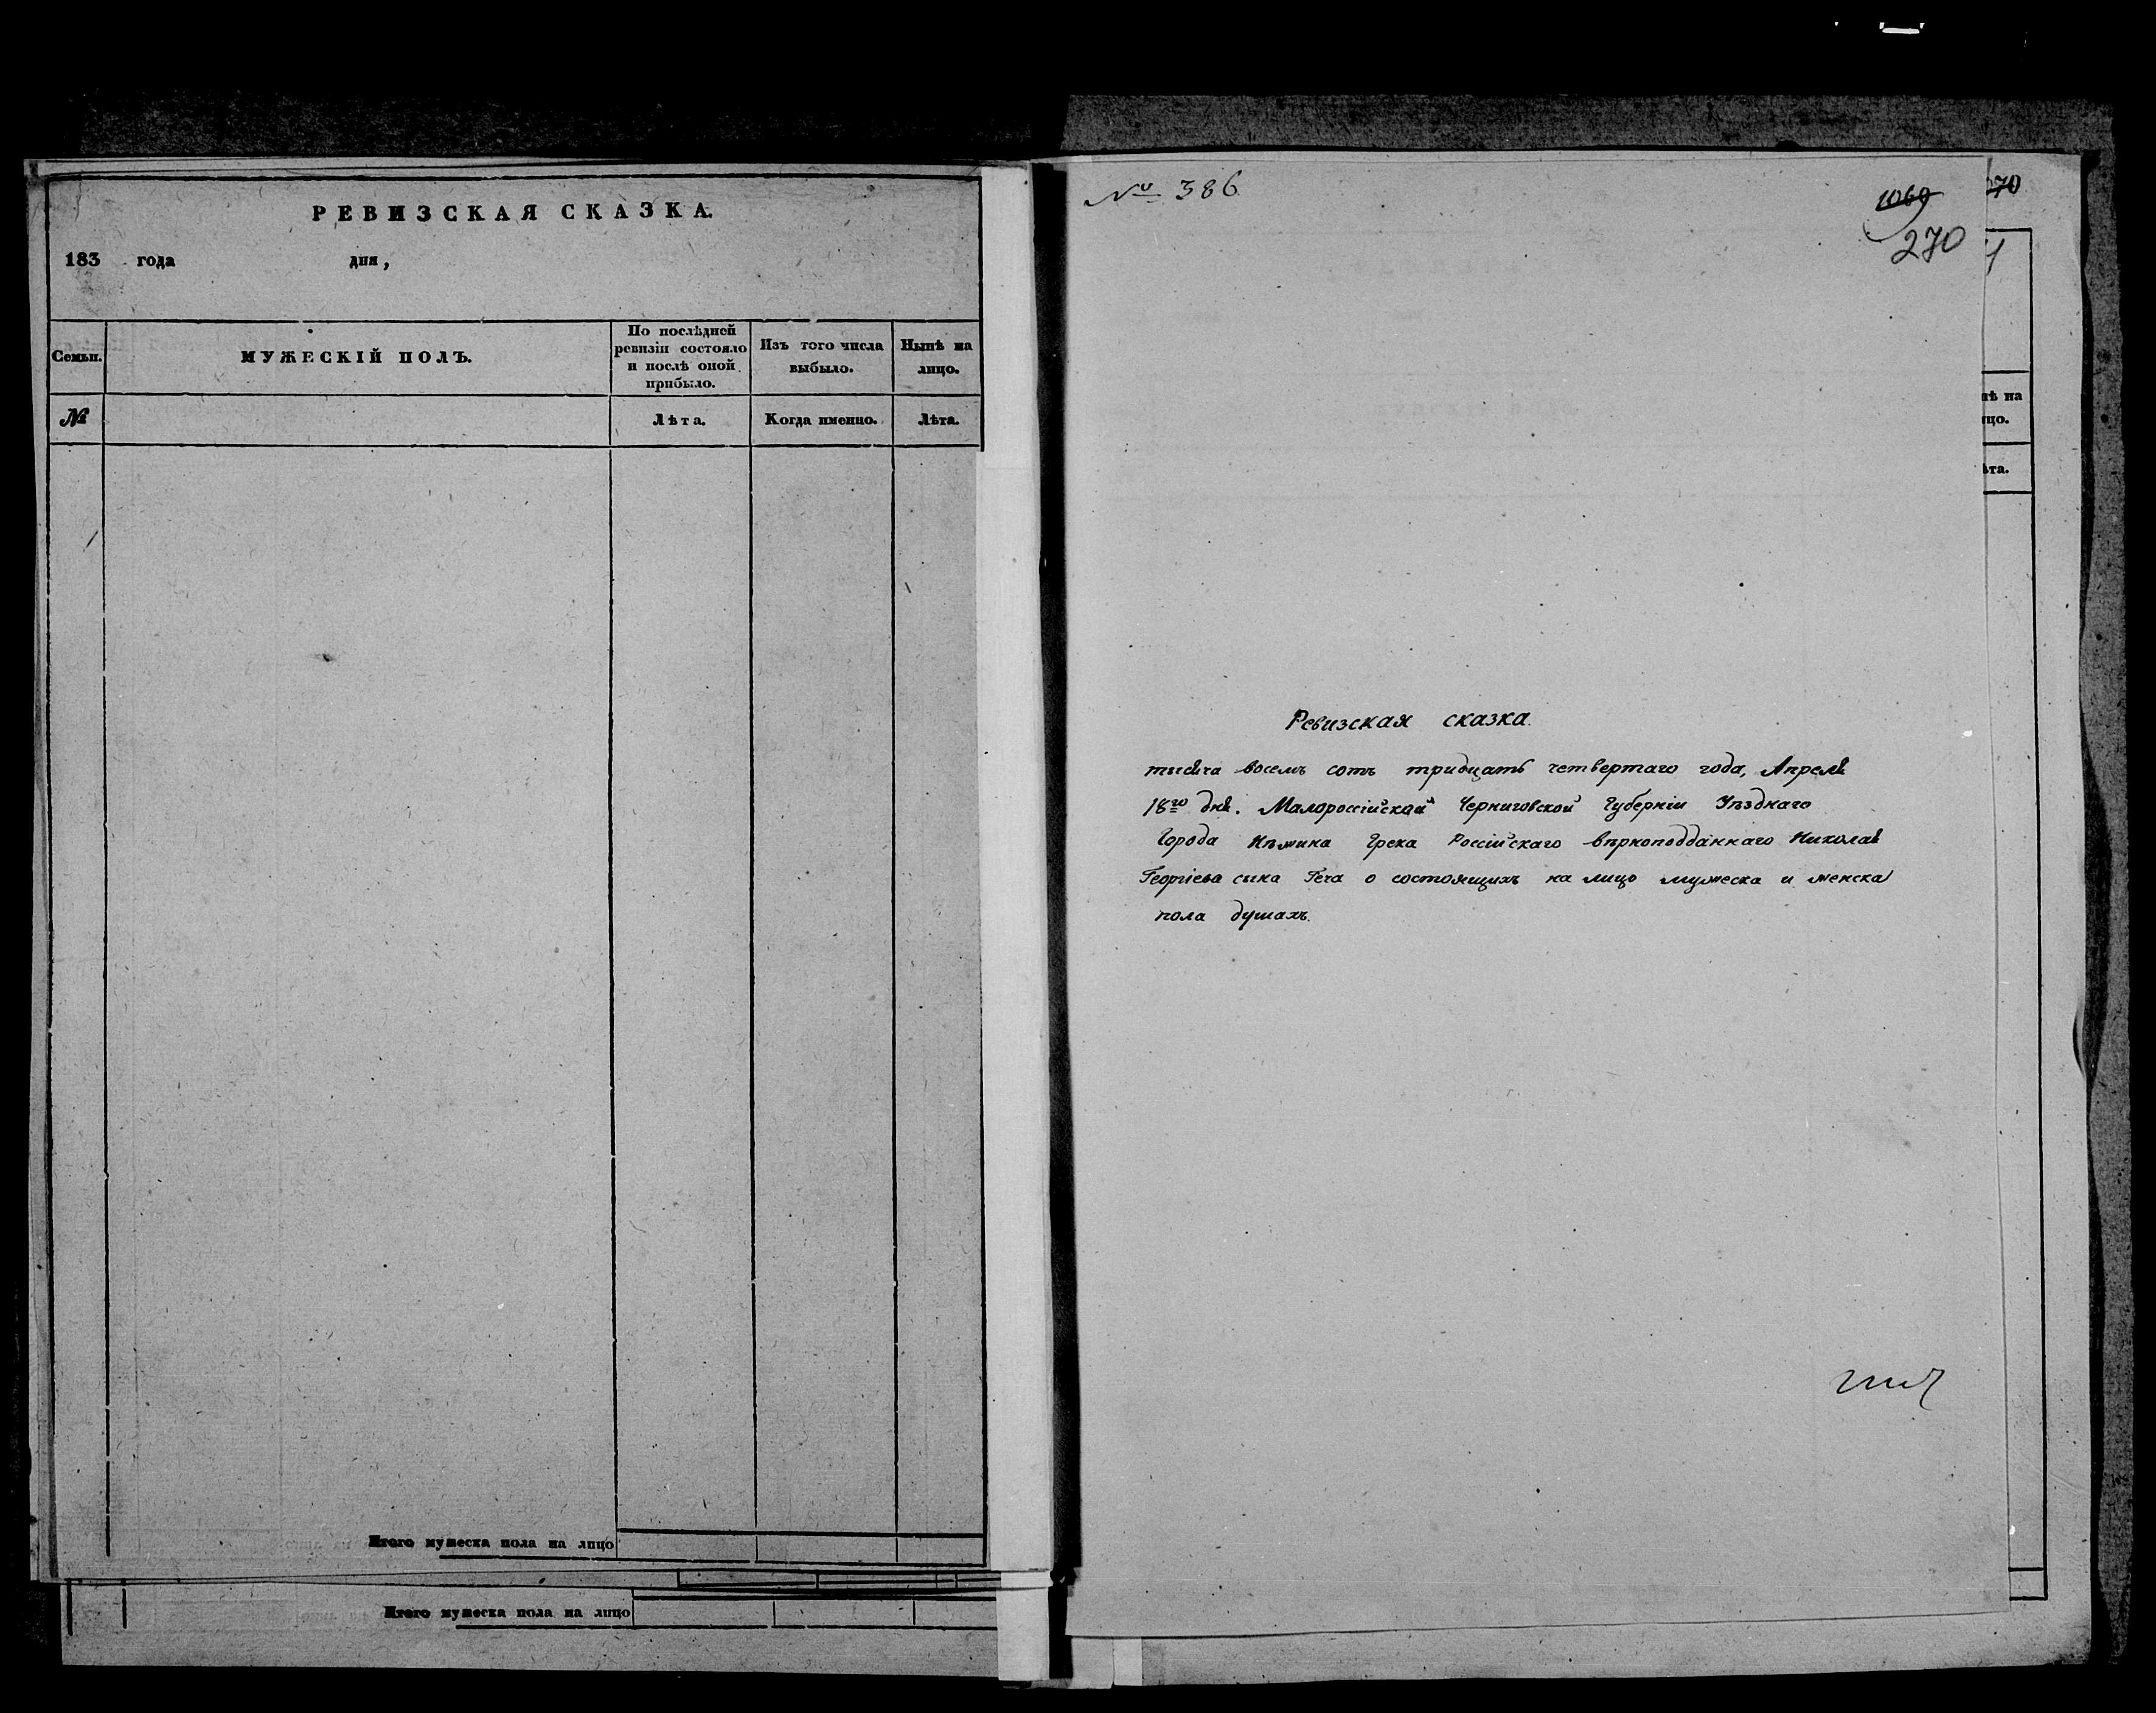 РЕВИЗСКАЯ СКАЗКА.
183 года дня,
Семьи.
МУЖЕСКІЙ ПОЛЪ.
По послѣдней
ревизіи состояло
и послѣ оной
прибыло.
Изъ того числа
выбыло.
Нынѣ на
лицо.
№
Лѣта.
Когда именно.
Лѣта.
Итого мужеска пола на лицо
Итого мужеска пола на лицо
№ 386
1069
270
70
Ревизская сказка.
тысяча восемь сотъ тридцать четвертаго года, Апреля
18го дня. Малороссійской Черниговской Губерніи Уѣзднаго
Города Нѣжина Грека Россійскаго вѣрноподданнаго Николая
Георгіева сына Геча о состоящихъ на лицо мужеска и женска
пола душахъ.
нѣ на
цо.
ѣта.